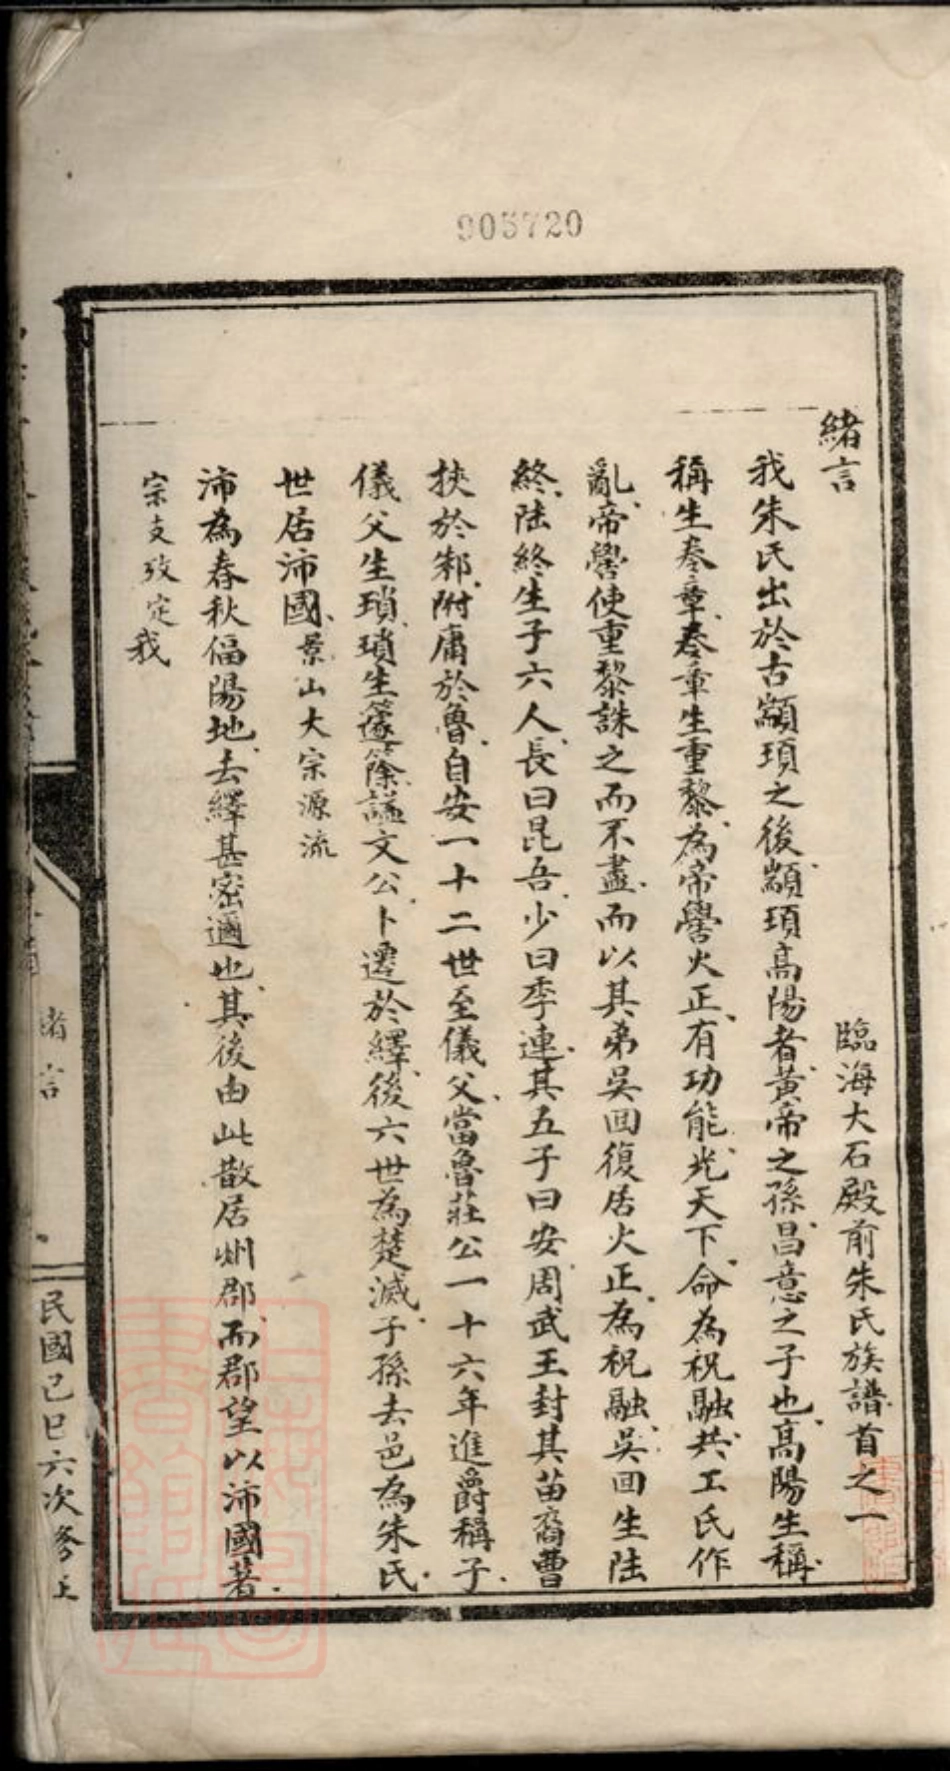 905720
緒言
臨海大石殿前朱氏族譜首之一
我朱氏出於古顓頊之後顓頊高陽者黃帝之孫昌意之子也高陽生稱
稱生卷章卷章生重黎為帝嚳火正有功能光天下命為祝融共工氏作
亂帝嚳使重黎誅之而不盡而以其弟吳回復居火正為祝融吳回生陸
終陸終生子六人長曰昆吾少曰季連其五子曰安周武王封其苗裔曹
挾於邾附庸於魯自安一十二世至儀父當魯莊公一十六年進爵稱子
儀父生瑣瑣生籧篨謚文公卜遷於繹後六世為楚滅子孫去邑為朱氏
世居沛國景山大宗源流
沛為春秋偪陽地去繹甚密邇也其後由此散居州郡而郡望以沛國著
宗支攷定我
緒言
民國己巳六次修上